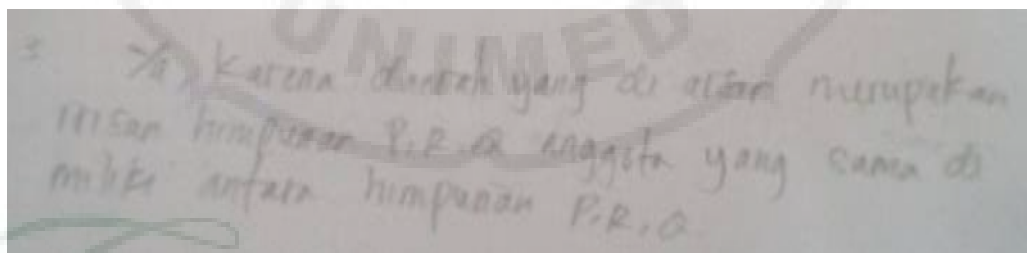 UNIMED
3 Ya, karena daerah yang di arsir merupakan
irisan himpunan P, R, Q anggota yang sama di
miliki antara himpunan P, R, Q